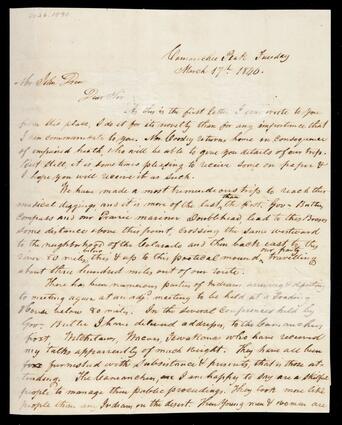 Camanchee Peak Tuesday
March 17th. 1840.
Mr John Drew
Dear Sir
As this is the first letter I ever wrote to you
from this place, I do it for its novelty than for any importance that
I can communicate to you. Mr Coodey returns home in consequence
of impaired health & who will be able to give you details of our trip.
But still, it is some times pleasing to receive some on paper &
I hope you will receive it as such.
We have made a most tremendous trip to reach this
musical diggings and it is more of the last, than the first. Gov. Butler
Compass and our Prarie mariner Doublehead lead to this
some distance above this point, crossing the same westward
to the neighborhood of the Colorado and then back east by this
river 80 miles below this & up to this poetical mound, our party travelling
about three hundred miles out of our route.
There has been numerous parties of Indians arriving & departing
to meeting again at an adjd. meeting to be held at a Trading
House below 80 miles. In the several Conferences held by
Gov. Butler I have delivered addresses, to the Camanchies,
, Witchitaws, Wacoes, Towaconas who have received
my talks apparently of much weight. They have all been
furnished with Subsistence & presents, that is those at-
tending. The Camanchies, are I am happy to say are a
people to manage their public proceedings. They look more like
people than any Indians on the desert. Their young men & women are